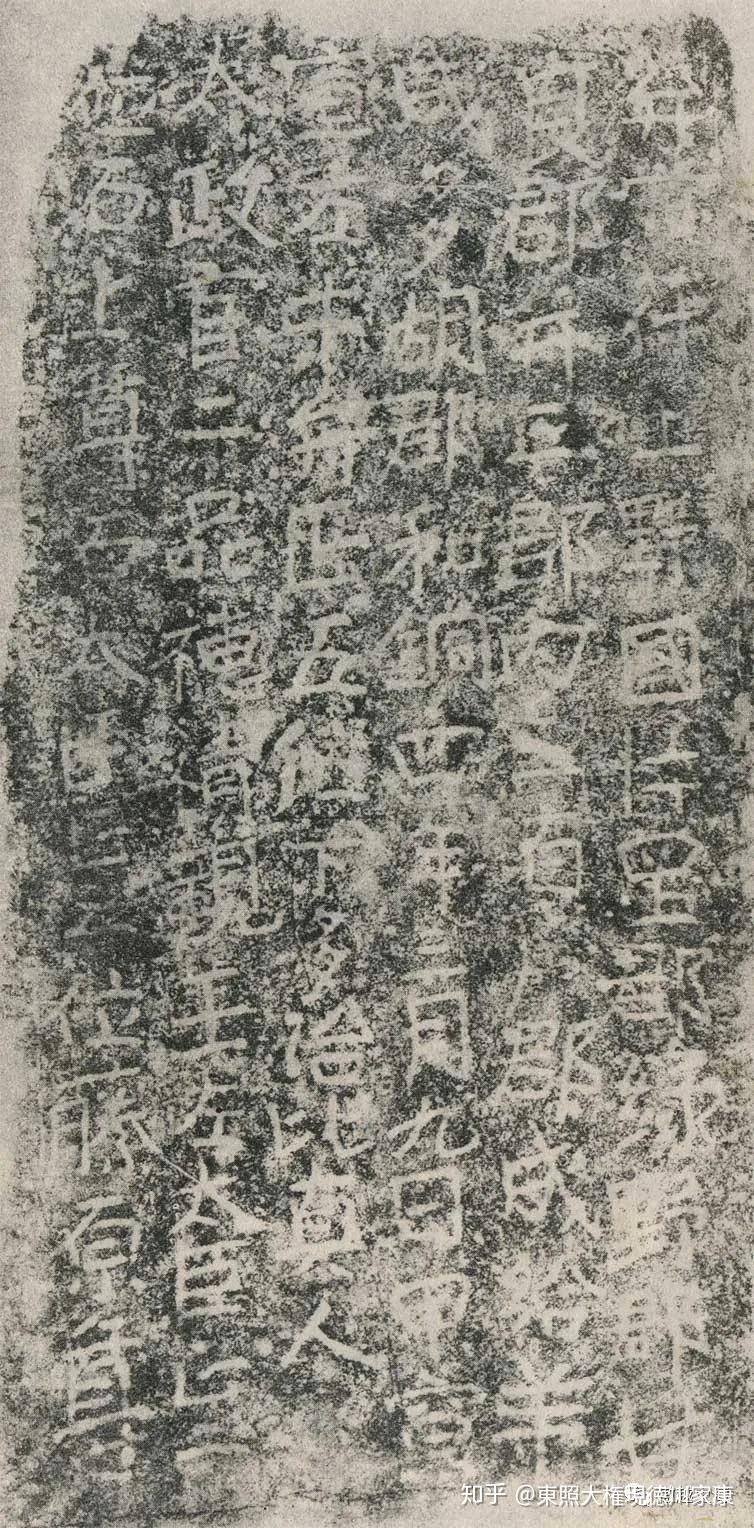 弁官符上野國片罡郡緑野郡甘
良郡并三郡内三百戸郡成給羊
成多胡郡和銅四年三月九日甲寅
宣左中弁正五位下多治比真人
太政官二品穂積親王左太臣正二
位石上尊右太臣正二位藤原尊
知乎 @東照大権現徳川家康